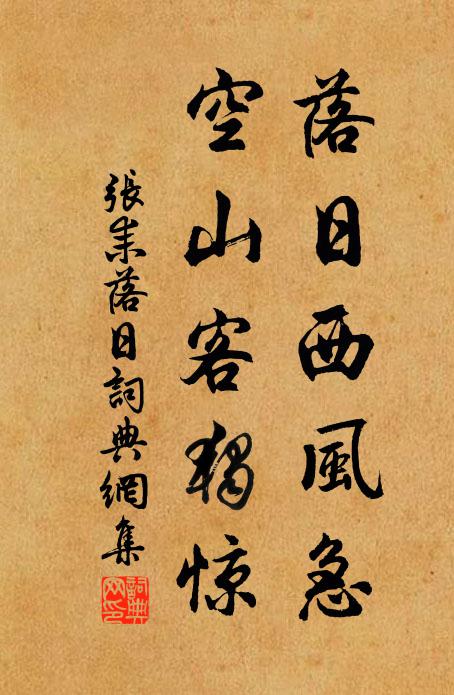 落日西風急
空山客獨惊
張耒落日詞典網集
詞典網印